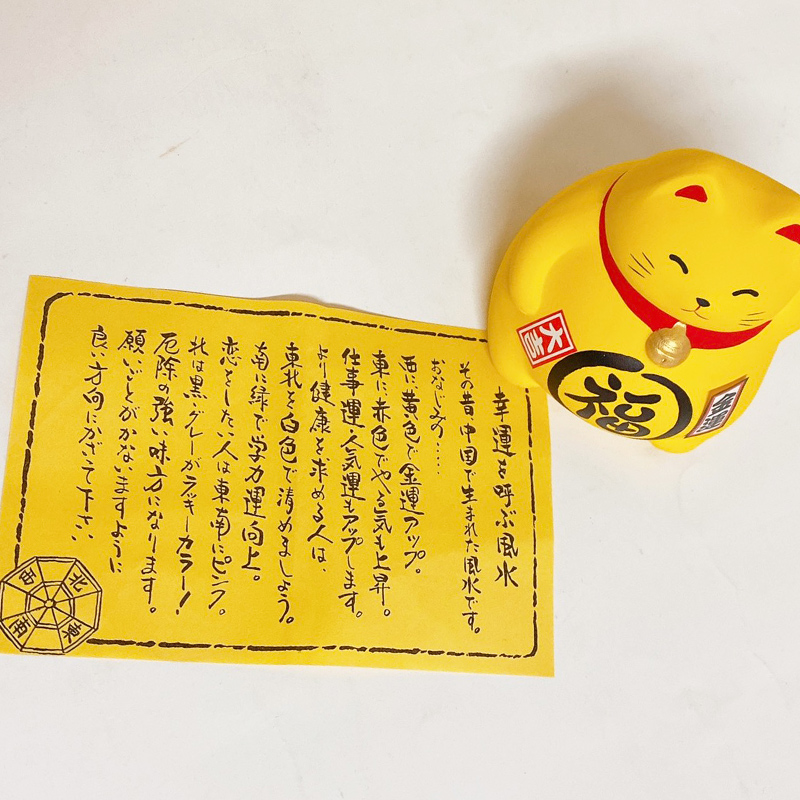 幸運を呼ぶ風水
その昔中国で生まれた風水です。
おなじみの……
西に黄色で金運アップ。
東に赤色でやる気も上昇。
仕事運・人気運もアップします。
より健康を求める人は、
東北と白色で清めましょう。
南に緑で学力運向上。
恋をしたい人は東南にピンク。
北は黒・グレーがラッキーカラー!
厄除の強い味方になります。
願いごとがかないますように
良い方向にかざって下さい
北
西
東
南
大吉
福
金運